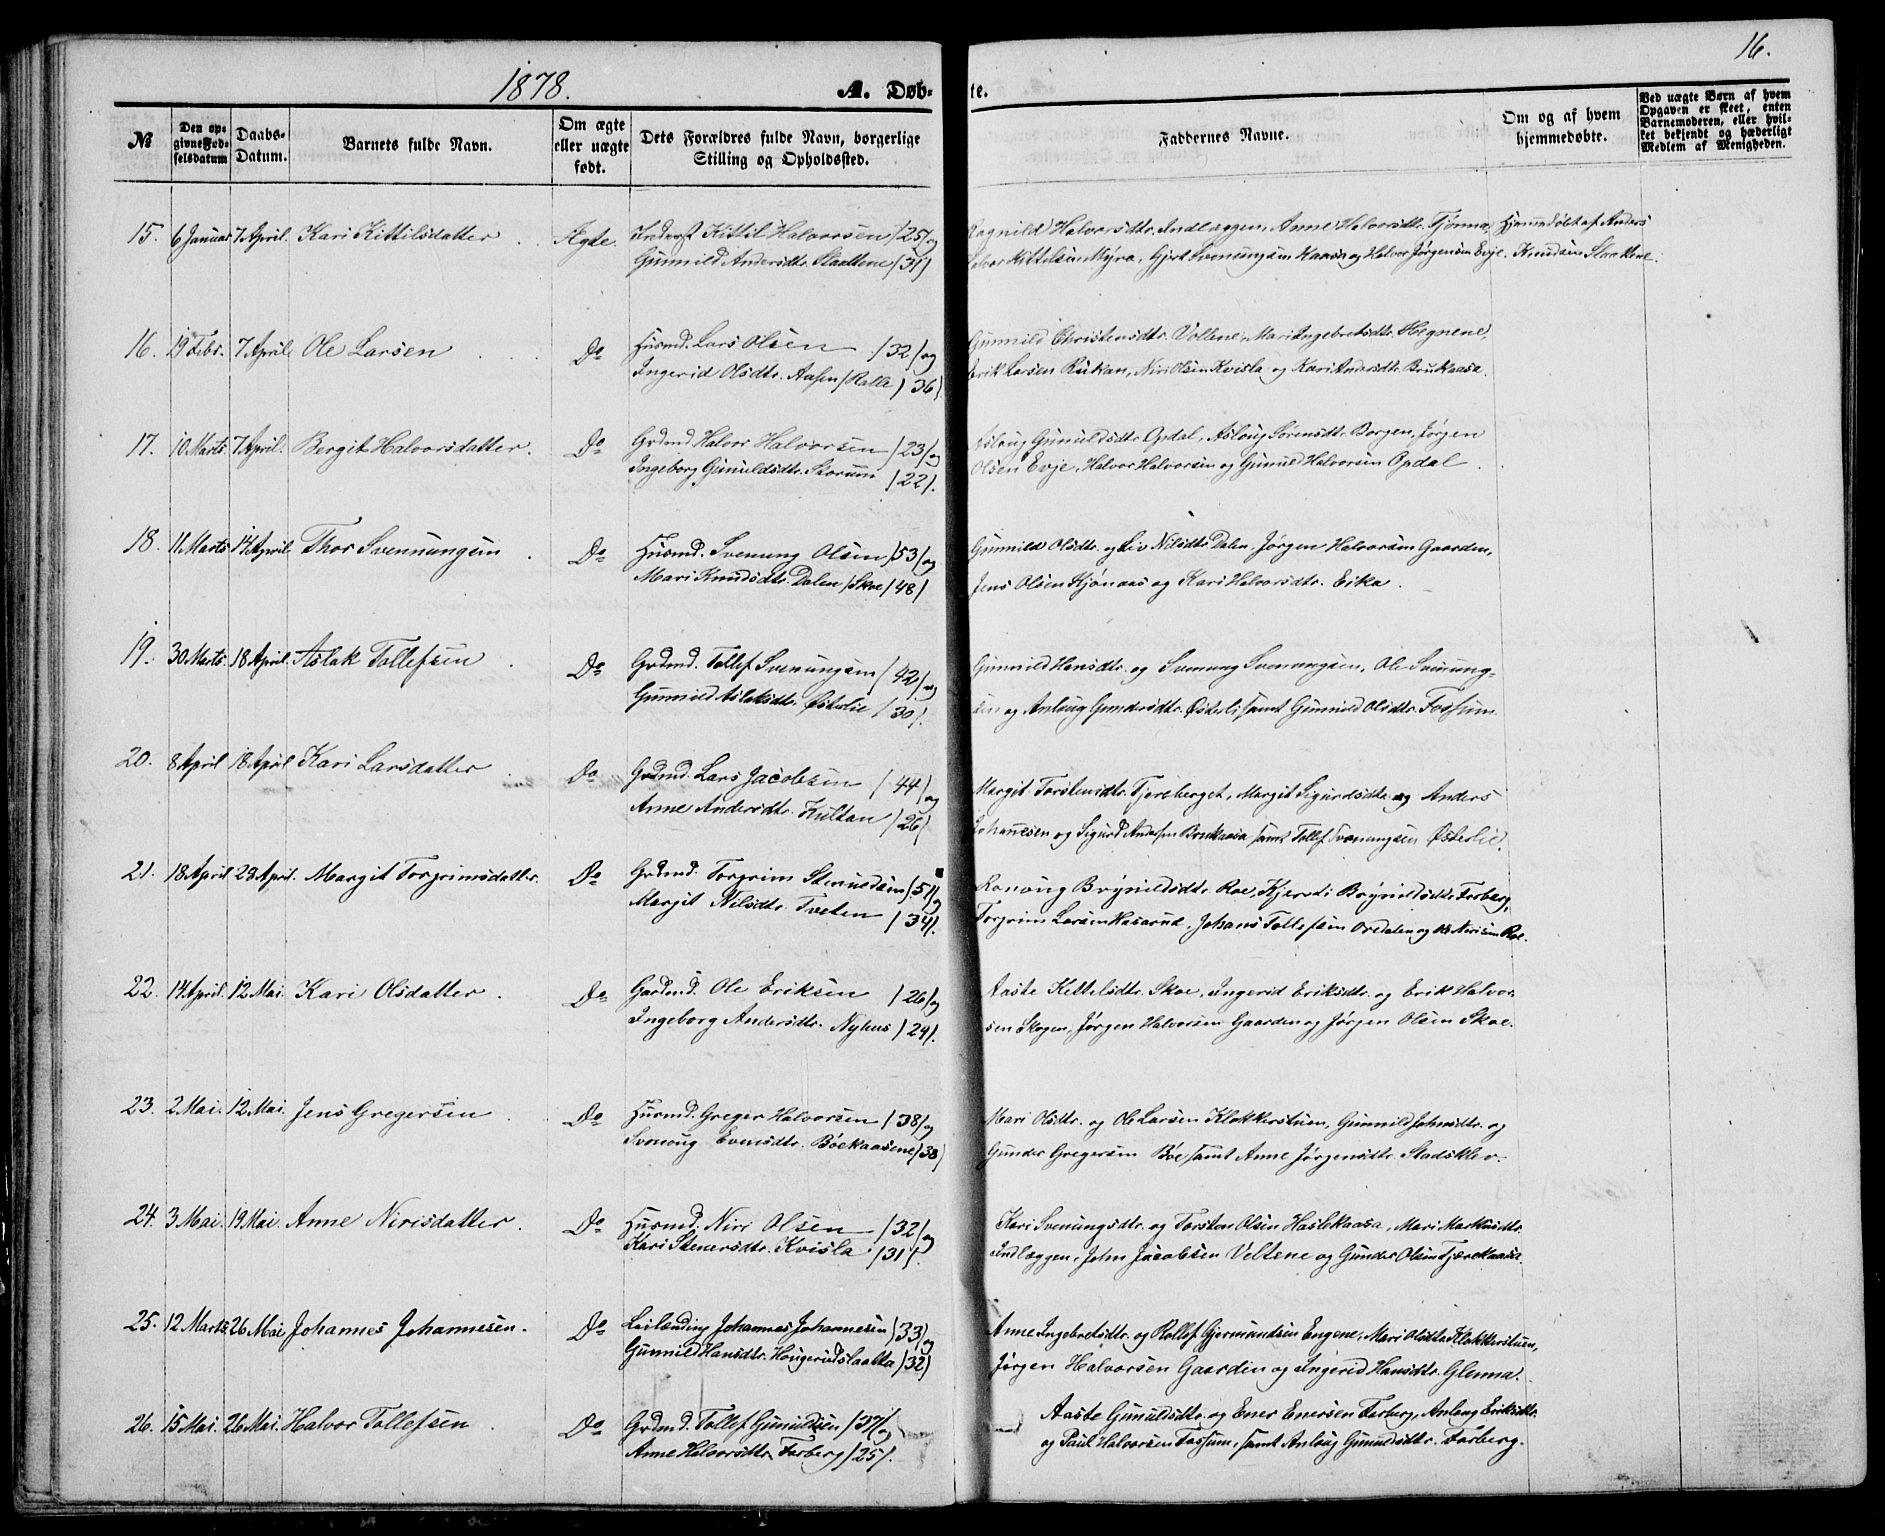 16.
1878.
A. Døb-
te.
№
Den op-
givne Fød-
selsdatum
Daabs-
Datum.
Barnets fulde Navn.
Om ægte
eller uægte
født.
Dets Forældres fulde Navn, borgerlige
Stilling og Opholdssted.
Faddernes Navne.
Om og af hvem
hjemmedøbte.
Ved uægte Børn af hvem
Opgaven er skeet, enten
Barnemoderen, eller hvil-
ket bekjendt og hæderligt
Medlem af Menigheden.
15. 6 Januar 7 April. Kari Kittilsdatter. Ægte. Inderst Kittil Halvorsen /25/ og
Gunnild Andersdtr. Slaattene /31/
Ragnild Halvorsdtr. Indlæggen, Anne Halvorsdtr. Tjønna, Hjemmedøbt af Anders
Halvor Kittelsen Myra, Gjert Svenungsen Kaasa og Halvor Jørgensen Evje. Knudsen Slaattene.
16. 19 Febr. 7 April. Ole Larsen Do Husmd. Lars Olsen /32/ og
Ingerid Olsdtr. Aasen /Kalle/ 36/
Gunnild Christensdtr. Vollene, Mari Ingebretsdtr. Hegnene,
Erik Larsen Rukan, Niri Olsen Kvisla og Kari Andersdtr. Brukaasa.
17. 10 Marts 7 April. Bergit Halvorsdatter. Do Grdmd. Halvor Halvorsen /23/ og
Ingeborg Gunuldsdtr. Storum /22/.
Aslaug Gunuldsdtr. Opdal, Aslaug Sørensdtr. Borgen, Jørgen
Olsen Evje, Halvor Halvorsen og Gunuld Halvorsen Opdal.
18. 11 Marts 14 April. Thor Svennungsen Do Husmd. Svenung Olsen /53/ og
Mari Knudsdtr. Dalen /Skoe/ 48/
Gunnild Olsdtr. og Liv Nilsdtr. Dalen, Jørgen Halvorsen Gaarden,
Jens Olsen Hjønaas og Kari Halvorsdtr. Eika.
19. 30 Marts 18 April. Aslak Tollefsen Do Grdmd. Tollef Svenungsen /42/ og
Gunnild Aslaksdtr. Østerlie /30/.
Gunnild Hansdtr. og Svenung Svenungsen, Ole Svenung-
sen og Anlaug Gundersdtr. Østerli samt Gunnild Olsdtr. Fossum.
20. 8 April 18 April Kari Larsdatter Do Grdmd. Lars Jacobsen /44/ og
Anne Andersdtr. Kultan /26/
Margit Torstensdtr. Fjereberget, Margit Sigurdsdtr. og Anders
Johannesen og Sigurd Andersen Brukaasa samt Tollef Svenungsen Østerlie.
21. 18 April 23 April. Margit Torgrimsdatter. Do Grdmd. Torgrim Stenulsen /51/ og
Margit Nilsdtr. Tveten /34/.
Ronoug Brynildsdtr. Roe, Kjersti Brynildsdtr. Forberg,
Torgrim Larsen Hasarud, Johans Tollefsen Ordalen og Ole Nirisen Roe.
22. 14 April. 12 Mai. Kari Olsdatter. Do Gardmd. Ole Eriksen /26/ og
Ingeborg Andersdtr. Nyhus /24/.
Aaste Kittelsdtr. Skoe, Ingerid Eriksdtr. og Erik Halvor-
sen Skogen, Jørgen Halvorsen Gaarden og Jørgen Olsen Skoe.
23. 2 Mai. 12 Mai. Jens Gregersen Do Husmd. Greger Halvorsen /38/ og
Svenoug Evensdtr. Bøekaasene /38/
Mari Olsdtr. og Ole Larsen Klokkerstuen, Gunnild Johnsdtr. og
Gunder Gregersen Bøe samt Anne Jørgensdtr. Stadsklev.
24. 3 Mai. 19 Mai. Anne Nirisdatter. Do Husmd. Niri Olsen /32/ og
Kari Stenersdtr. Kvisla /31/.
Kari Svenungsdtr. og Torsten Olsen Haslekaasa, Mari Markusdtr.
Indlæggen, John Jacobsen Veltene og Gunder Olsen Tjærekaasa.
25. 12 Marts 26 Mai Johannes Johannesen. Do Leilænding Johannes Johannesen /33/ og
Gunnild Hansdtr. Hougerudslaatta /32/
Anne Ingebretsdtr. og Rollef Gjermundsen Engene, Mari Olsdtr. Klokkerstuen,
Jørgen Halvorsen Gaarden og Ingerid Hansdtr. Glenna.
26. 15 Mai. 26 Mai. Halvor Tollefsen Do Grdmd. Tollef Gunuldsen /37/ og
Anne Halvorsdtr. Forberg /25/.
Aaste Gunuldsdtr. og Ener Enersen Forberg, Anlaug Eriksdtr.
og Paul Halvorsen Fossum, samt Anlaug Gunuldsdtr. Forberg.